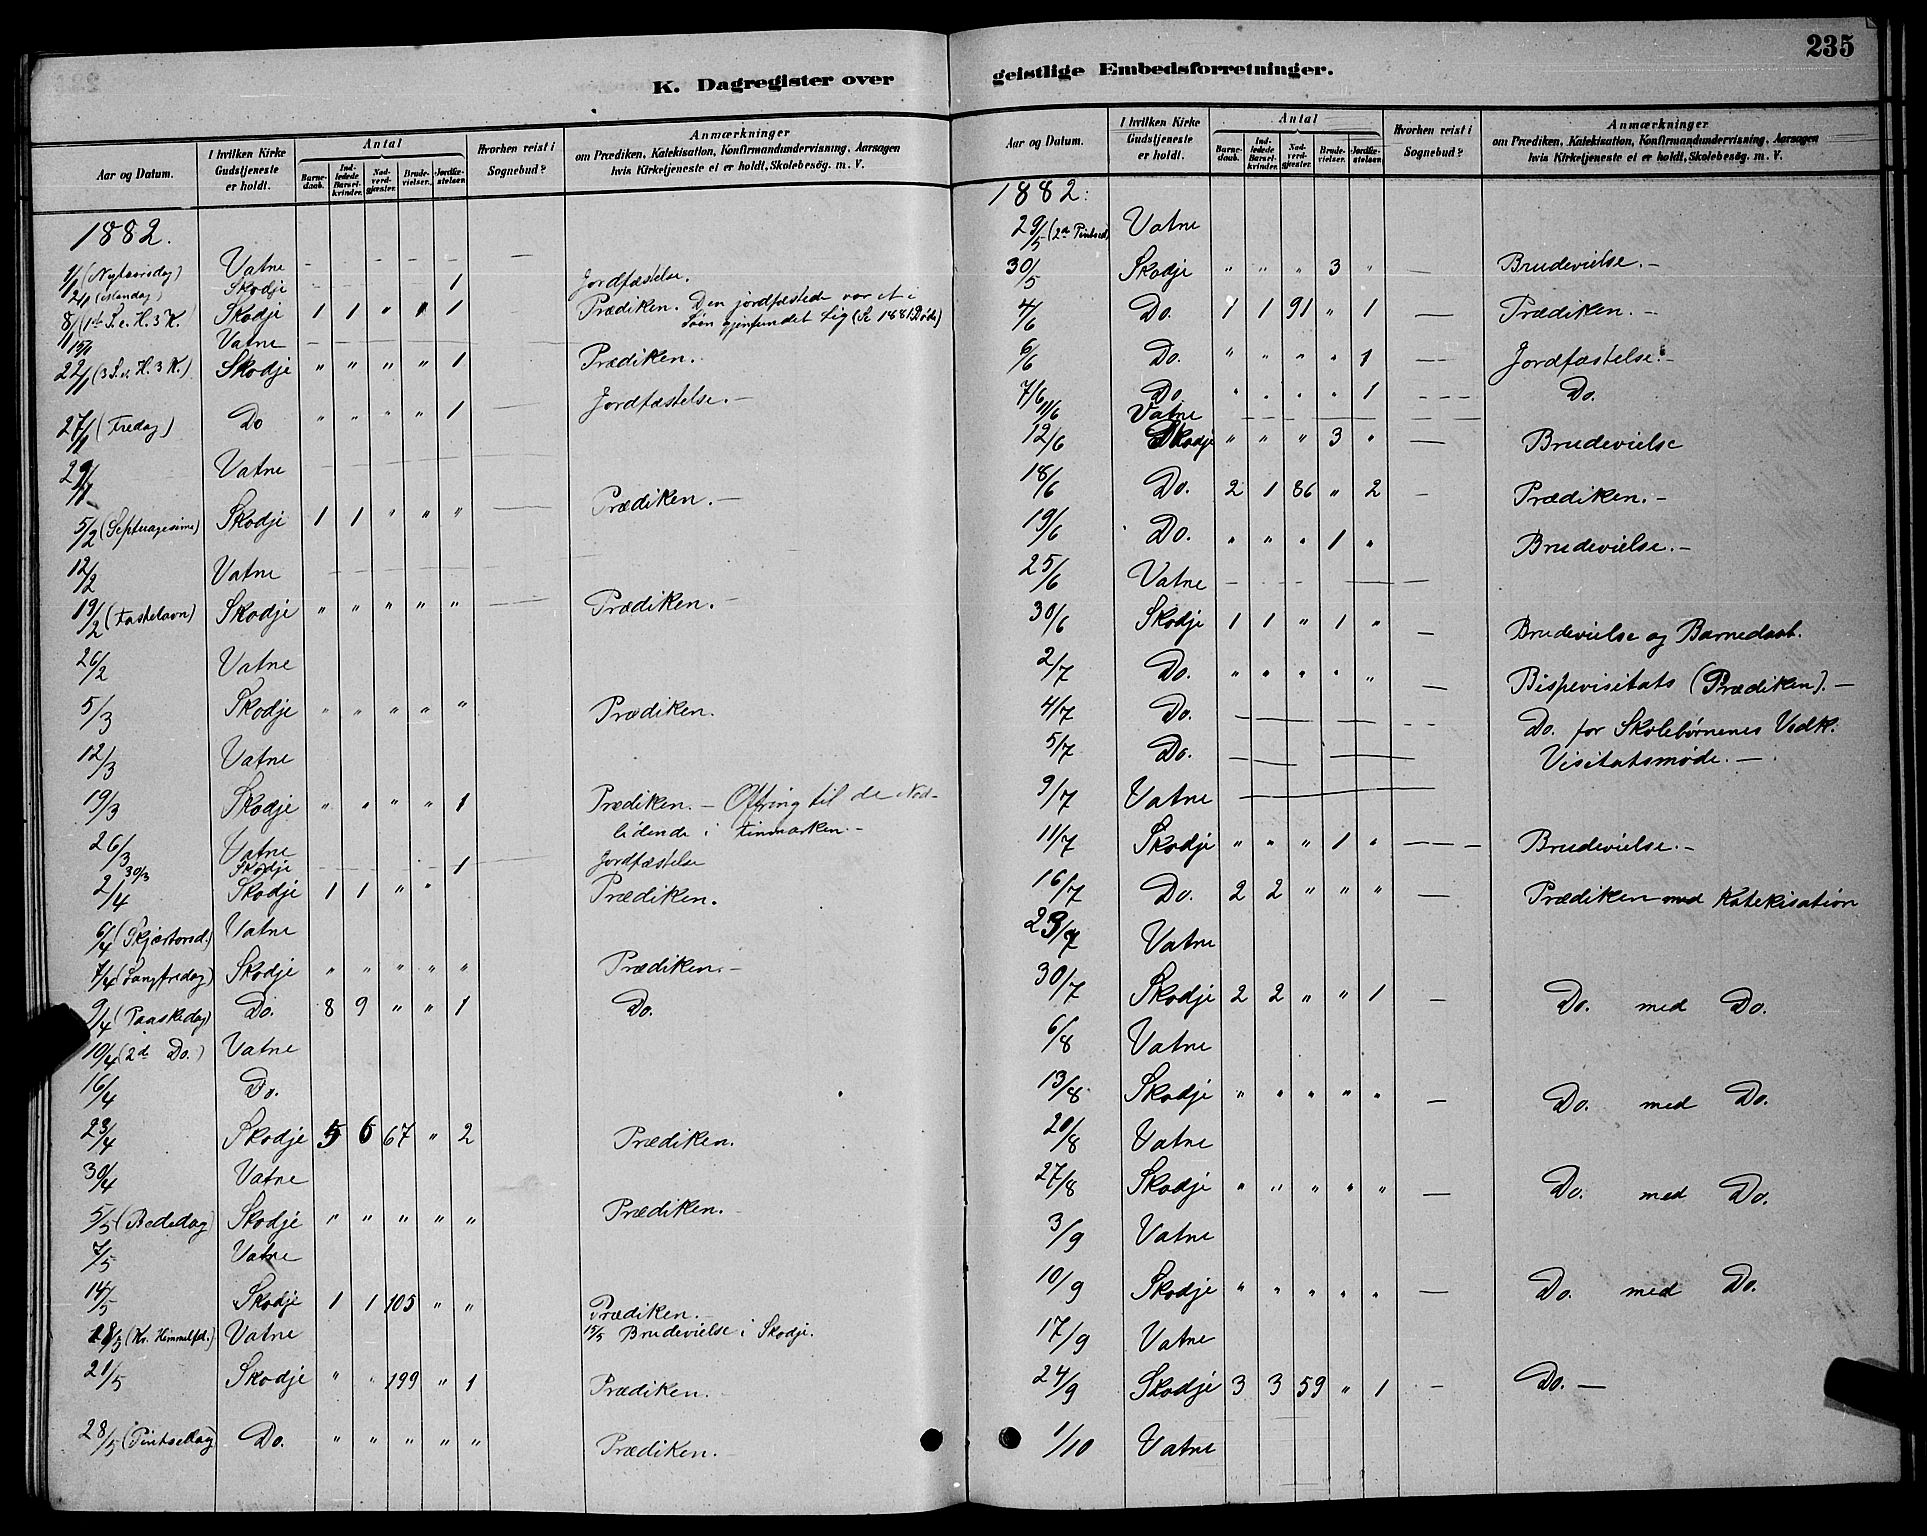 235
K. Dagregister over geistlige Embedsforretninger.
Aar og Datum. | I hvilken Kirke Gudstjeneste er holdt. | Antal | Barne-daab. | Ind-ledede Barsel-kvinder. | Nad-verd-gjæster. | Brude-vielser. | Jordfæ-stelser. | Hvorhen reist i Sognebud? | Anmærkninger om Prædiken, Katekisation, Konfirmandundervisning, Aarsagen hvis Kirketjeneste ei er holdt, Skolebesög. m. V.
1882.
1/1 (Nytaarsdag) Vatne - - - - - —
2/1 (Mandag) Skodje 1 Jordfæstelse.
8/1 (1ste S. e. H. 3 K. Skodje 1 1 " 1 1 Prædiken. Den jordfæstede var et i
Søen gjenfundet Lig (Se 1881 Døde)
15/1 Vatne
22/1 (3 S. e. H. 3 K.) Skodje " " " " 1 Prædiken.
27/1 (Fredag) Do " " " " 1 — Jordfæstelse. —
29/1 Vatne
5/2 (Septuagesima) Skodje 1 1 " " " — Prædiken. —
12/2 Vatne
19/2 (Fastelavn) Skodje " " " " " — Prædiken. —
26/2 Vatne
5/3 Skodje " " " " " Prædiken.
12/3 Vatne
19/3 Skodje " " " " 1 Prædiken. — Offring til de Nød-
lidende i Finmarken. —
26/3 Vatne
30/3 Skodje 1 Jordfæstelse
2/4 Skodje 1 1 " " Prædiken.
6/4 (Skjærtorsd.) Vatne
7/4 (Langfredag) Skodje " " " " " Prædiken. —
9/4 (Paaskedag) Do. 8 9 " " 1 Do.
10/4 (2d Do.) Vatne
16/4 Do.
23/4 Skodje 5 6 67 " 2 Prædiken.
30/4 Vatne
5/5 (Bededag) Skodje " " " " " Prædiken.
7/5 Vatne
14/5 Skodje 1 1 105 " " Prædiken. —
18/5 (Kr. Himmelfd.) Vatne 15/5 Brudevielse i Skodje.
21/5 Skodje " " 199 " 1 Prædiken. —
28/5 (Pintsedag) Do. " " " " " Prædiken. —
Aar og Datum. | I hvilken Kirke Gudstjeneste er holdt. | Antal | Barne-daab. | Ind-ledede Barsel-kvinder. | Nad-verd-gjæster. | Brude-vielser. | Jordfæ-stelser. | Hvorhen reist i Sognebud? | Anmærkninger om Prædiken, Katekisation, Konfirmandundervisning, Aarsagen hvis Kirketjeneste ei er holdt, Skolebesög. m. V.
1882:
29/5 (2d Pintsed) Vatne
30/5 Skodje " " " 3 " — Brudevielse. —
4/6 Do. 1 1 91 " 1 — Prædiken. —
6/6 Do. " " " " 1 — Jordfæstelse. —
7/6 Do. " " " " 1 - - - Do.
11/6 Vatne
12/6 Skodje " " " 3 " — Brudevielse
18/6 Do. 2 1 86 " 2 — Prædiken. —
19/6 Do. " " " 1 " Brudevielse. —
25/6 Vatne
30/6 Skodje 1 1 " 1 " — Brudevielse og Barnedaab.
2/7 Do. " " " " " — Bispevisitats (Prædiken). —
4/7 Do. Do. for Skolebørnenes Vedk.
5/7 Do. Visitatsmøde. —
9/7 Vatne
11/7 Skodje " " " 1 " - - - Brudevielse. —
16/7 Do. 2 2 " " " — Prædiken med Katekisation
23/7 Vatne
30/7 Skodje 2 2 " " 1 — Do. med Do.
6/8 Vatne
13/8 Skodje " " " " " — Do. med Do.
20/8 Vatne
27/8 Skodje " " " " " — Do. med Do.
3/9 Vatne
10/9 Skodje " " " " " — Do. med Do.
17/9 Vatne
24/9 Skodje 3 3 59 " 1 — Do. —
1/10 Vatne